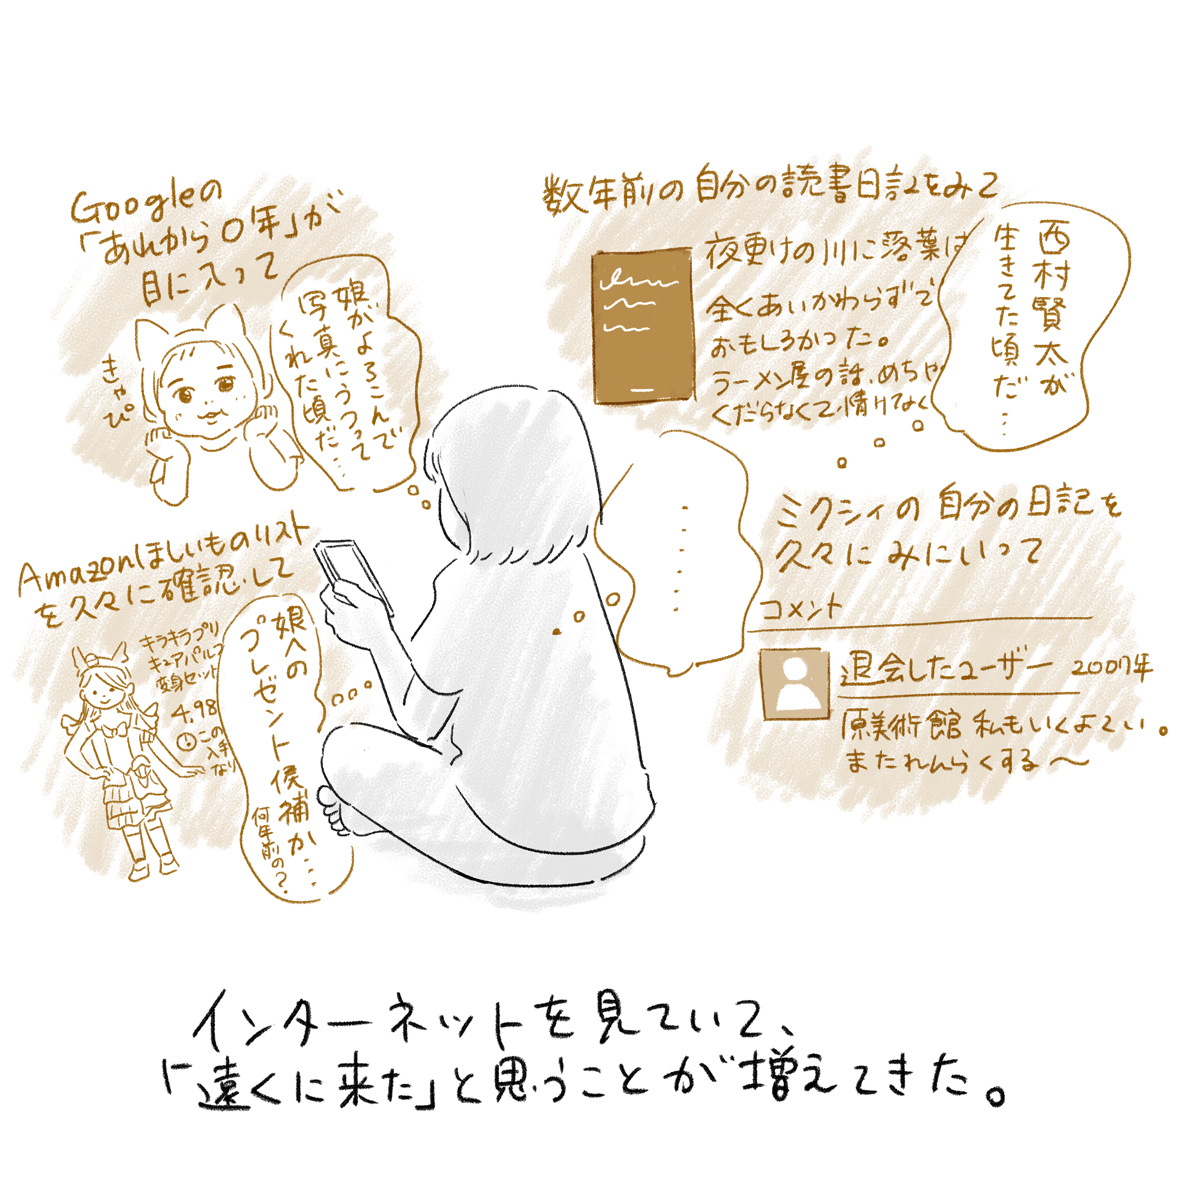 Googleの
「あれから〇年」が
目に入って
きゃぴ
娘がよろこんで
写真にうつって
くれた頃だ…
数年前の自分の読書日記をみて
夜更けの川に落葉は
全くあいかわらずで
おもしろかった。
ラーメン屋の話、めちゃ
くだらなくて、情けなく
西村賢太が
生きてた頃だ…
Amazonほしいものリスト
を久々に確認して
キラキラプリ
キュアパルフ
変身セット
4.98
この
入手
なり
娘への
プレゼント候補か…
何年前の?
......
ミクシィの自分の日記を
久々にみにいって
コメント
退会したユーザー 2007年
原美術館 私もいくよてい。
またれんらくする〜
インターネットを見ていて、
「遠くに来た」と思うことが増えてきた。